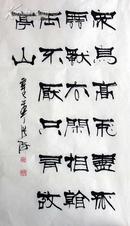 眾鳥高飛盡孤
雲獨去閒相看
兩不厭只有敬
亭山